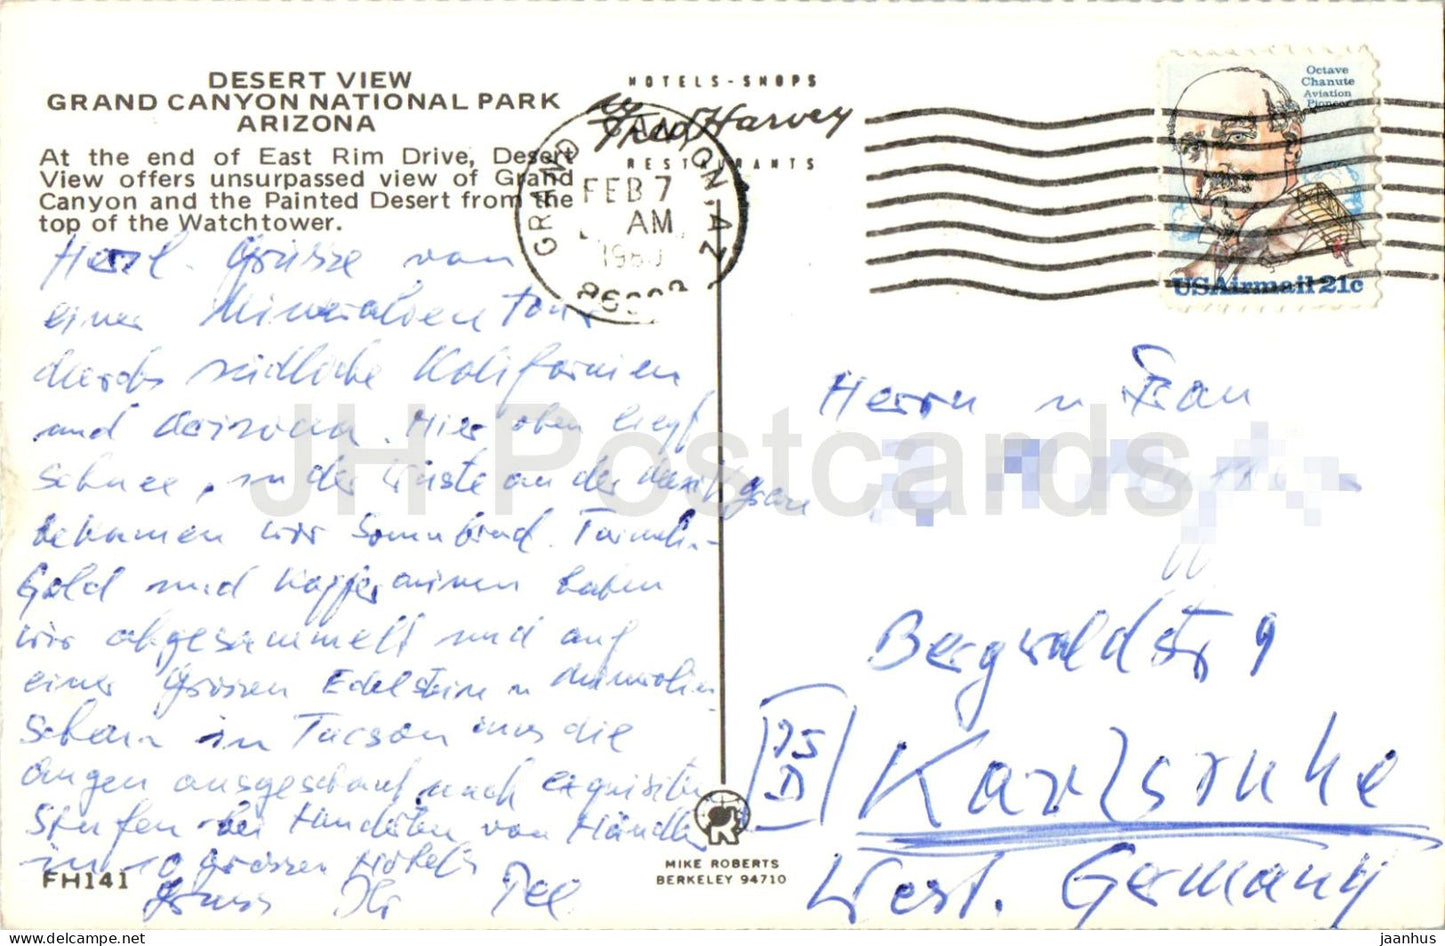 DESERT VIEW
GRAND CANYON NATIONAL PARK
ARIZONA
At the end of East Rim Drive, Desert
View offers unsurpassed view of Grand
Canyon and the Painted Desert from the
top of the Watchtower.
HOTELS-SHOPS
Fred Harvey
RESTAURANTS
GRAND CANYON, AZ
FEB 7
AM
Octave
Chanute
Aviation
Pioneer
USAirmail 21c
Herzl. Grüsse von
einer Mineralien Tour
durchs südliche Kalifornien
und Arizona. Hier oben liegt
Schnee, in der Wüste an der
bekamen wir Sonnbrand.
Gold und Kupferminen haben
wir abgesammelt und auf
einer grossen Edelstein u Mineralien
Schau in Tucson uns die
Augen ausgeschaut nach exquisiten
Stufen bei Hunderten von Händler
in 10 grossen Hotels
Gruss Ihr
Herrn u Frau
Bergwaldstr 9
75
D
Karlsruhe
West. Germany
MIKE ROBERTS
BERKELEY 94710
FH141
JH Postcards
jaanhus